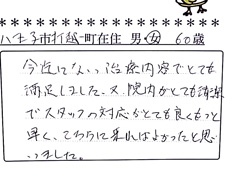 八王子市打越町在住 男・女 60歳
今迄にない治療内容でとても
満足しました。又、院内がとても清潔
でスタッフの対応がとても良くもっと
早く、こちらに来ればよかったと思
いました。